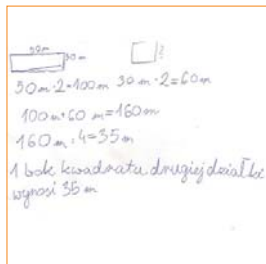 50m 30m
50m·2=100m 30m·2=60m
100m+60m=160m
160m:4=35m
1 bok kwadratu drugiej działki
wynosi 35 m